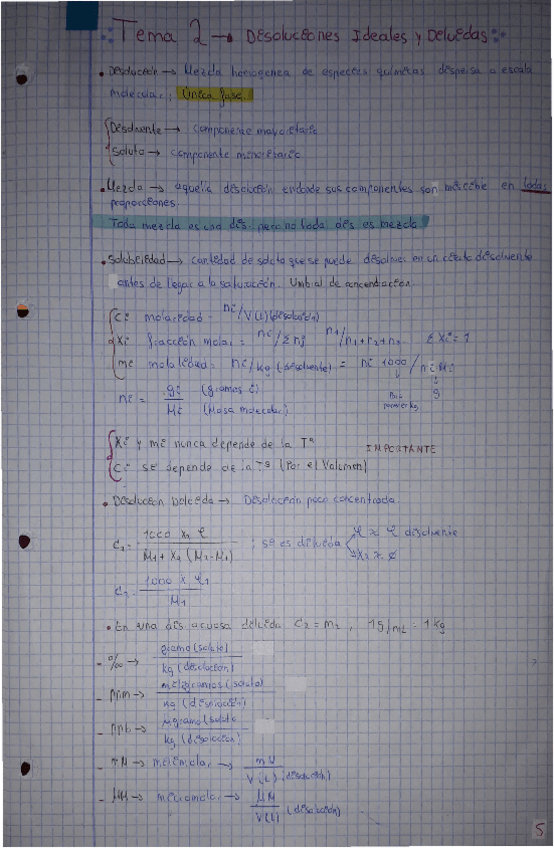 Tema 2 → Disoluciones Ideales y Diluidas
• Disolución → Mezcla homogénea de especies químicas dispersa a escala
molecular, Única fase.
Disolvente → componente mayoritario
Soluto → componente minoritario
• Mezcla → aquella disolución en donde sus componentes son miscible en todas
proporciones.
Toda mezcla es una dis. pero no toda dis es mezcla
• Solubilidad → cantidad de soluto que se puede disolver en un cierto disolvente
antes de llegar a la saturación. Umbral de concentración.
Ci molaridad = ni/V(L)(disolución)
Xi fracción molar = ni/Σnj n1/n1+n2+n3 ΣXi = 1
mi molalidad = ni/kg (disolvente) = ni 1000 / n1 M1
ni = gi (gramos i) / Mi (Masa molecular) g
Xi y mi nunca depende de la Tª IMPORTANTE
Ci SE depende de la Tª (Por el Volumen)
• Disolución Diluida → Disolución poco concentrada
C2 = 1000 X2 ρ / M1 + X2 (M2 - M1) ; si es diluida ρ ≈ ρ disolvente
X2 ≈ 0
C2 = 1000 X ρ1 / M1
• En una dis acuosa diluida C2 = m2, 1g/mL = 1 kg
- ‰ → gramo (soluto) / kg (disolución)
- ppm → miligramos (soluto) / kg (disolución)
- ppb → μgramo (soluto / kg (disolución)
- mM → milimolar → mM / V(L) (disolución)
- μM → micromolar → μM / V(L) (disolución)
5